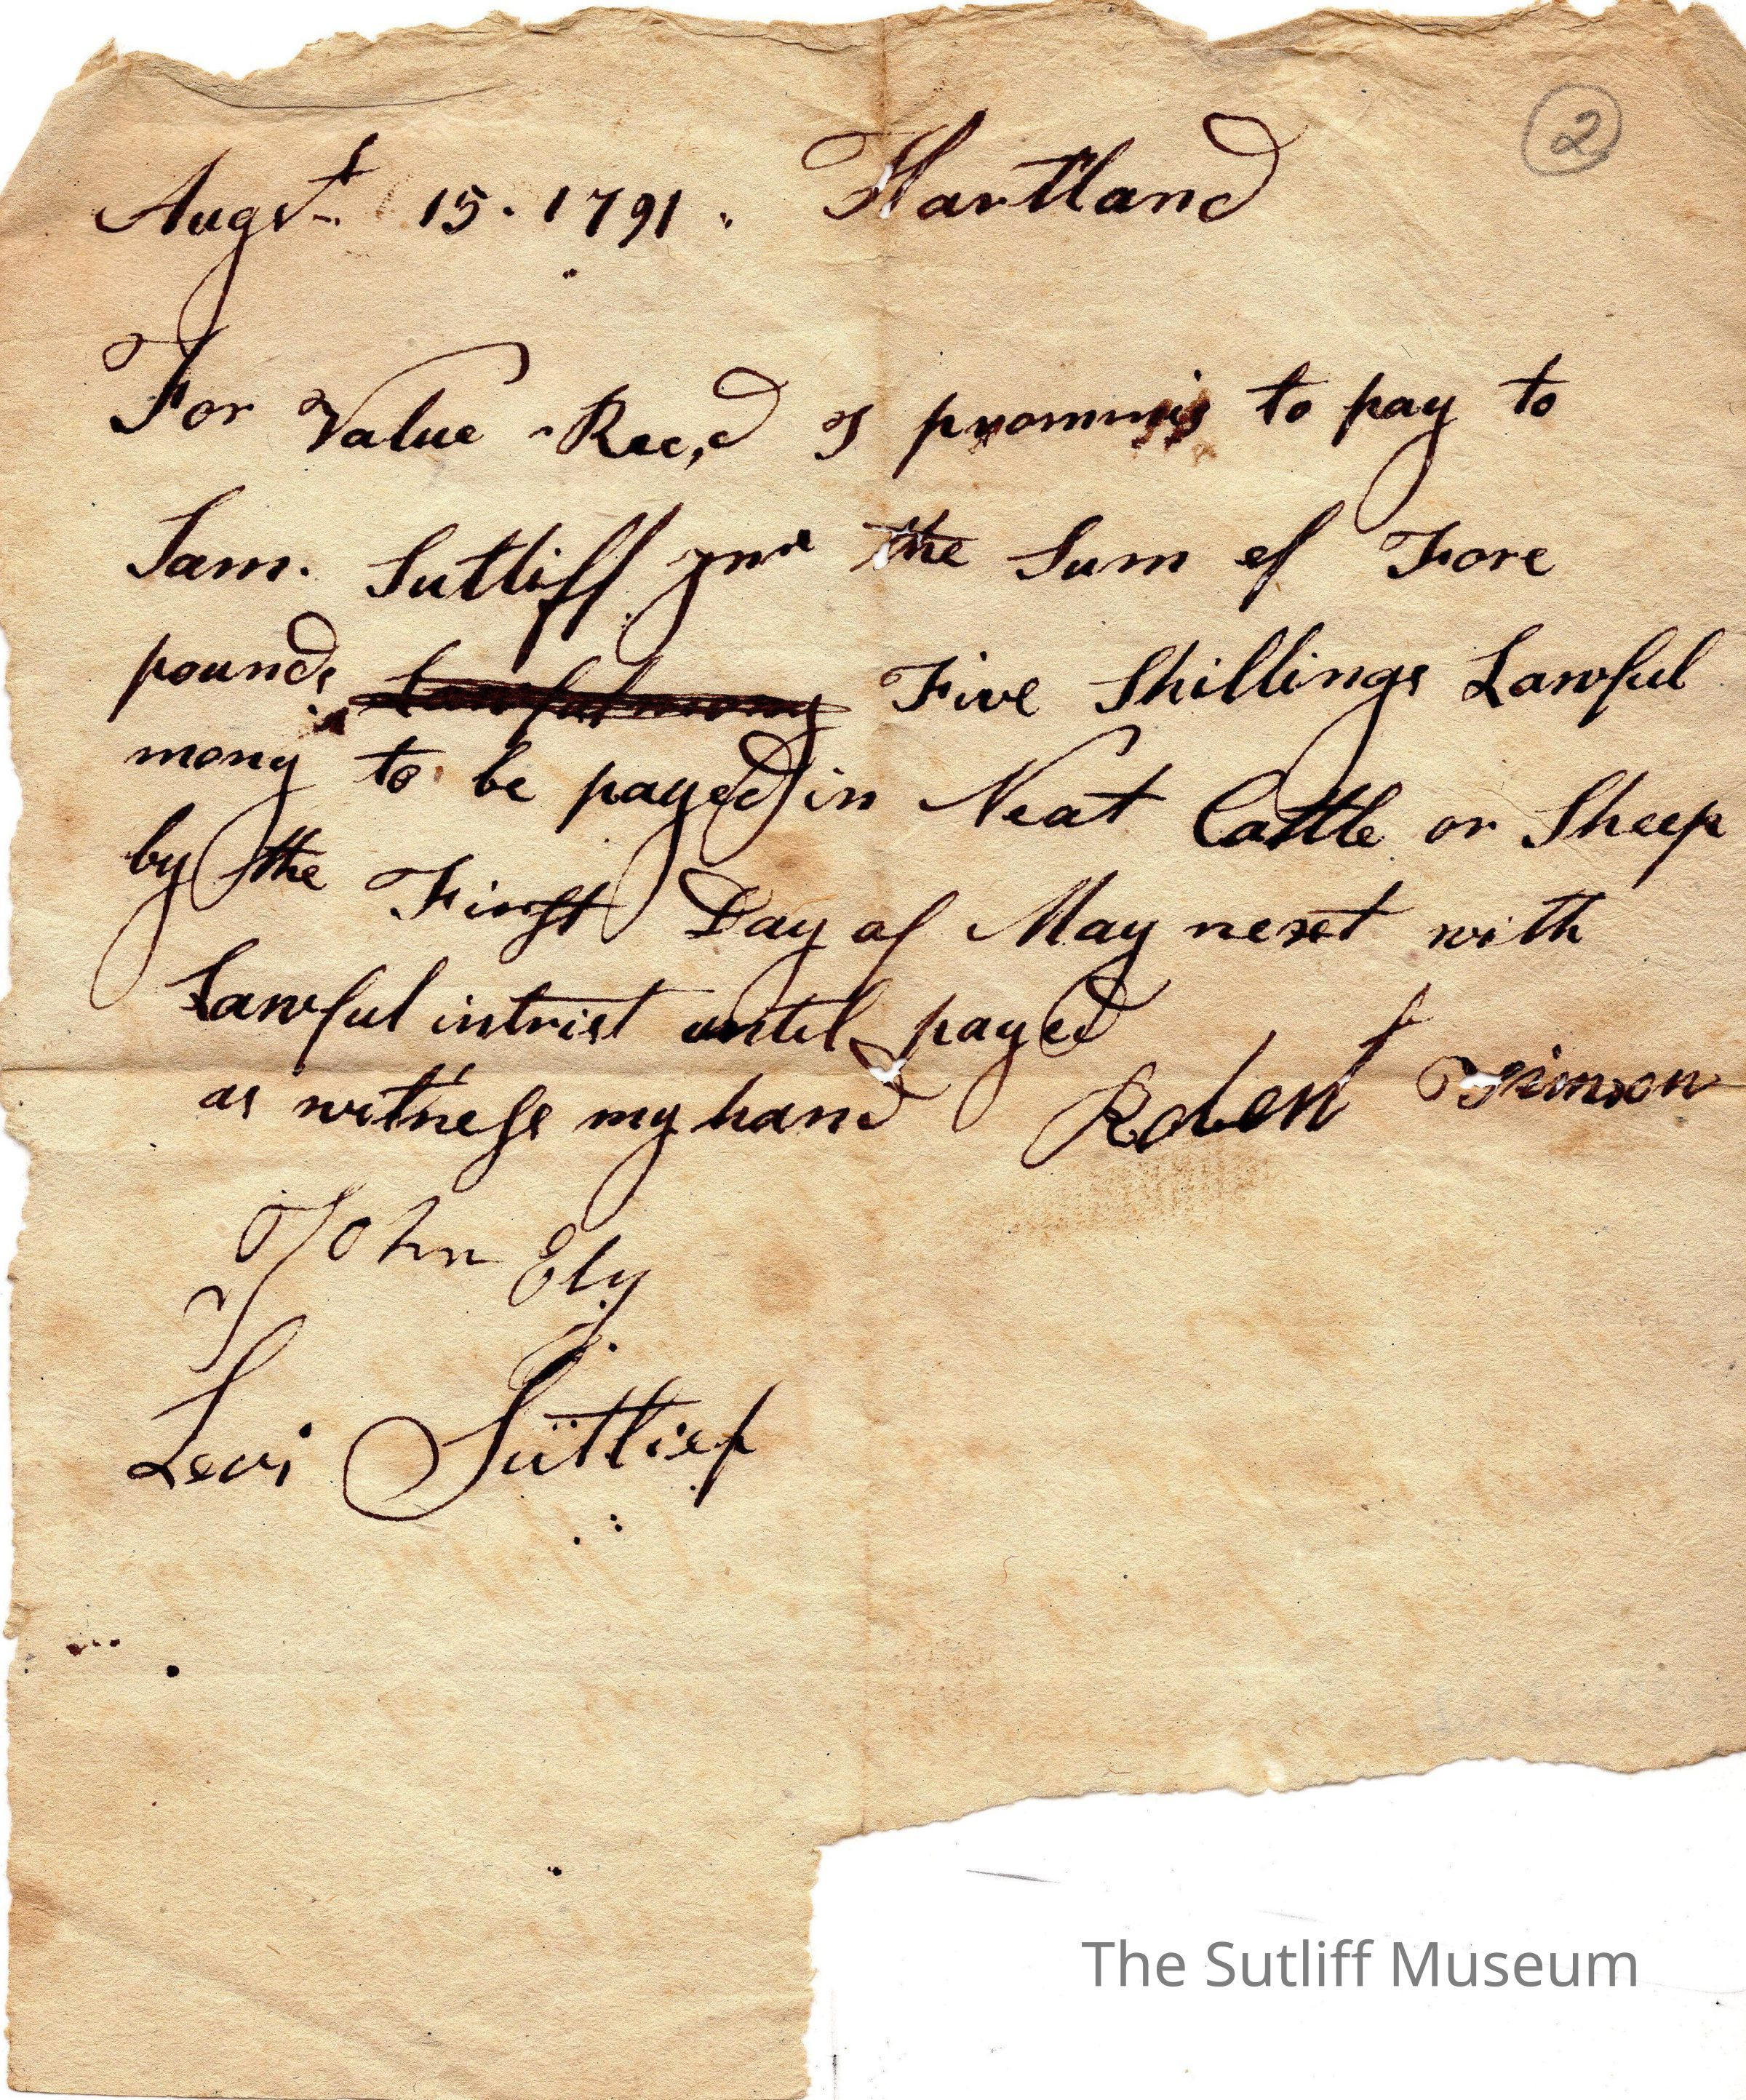 2
Augst 15. 1791. Hartland
For Value Rec,d I prommis to pay to
Sam. Sutliff Jnr the Sum of Fore
pounds Lawful mony Five Shillings Lawful
mony to be payed in Neat Cattle or Sheep
by the First Day of May next with
Lawful intrist until payed
as witness my hand Robert
John Ely
Levi Sutlief
The Sutliff Museum